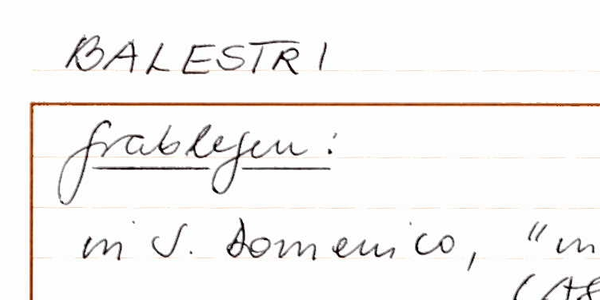 BALESTRI
Grablegen:
in S. Domenico, "in
(AS